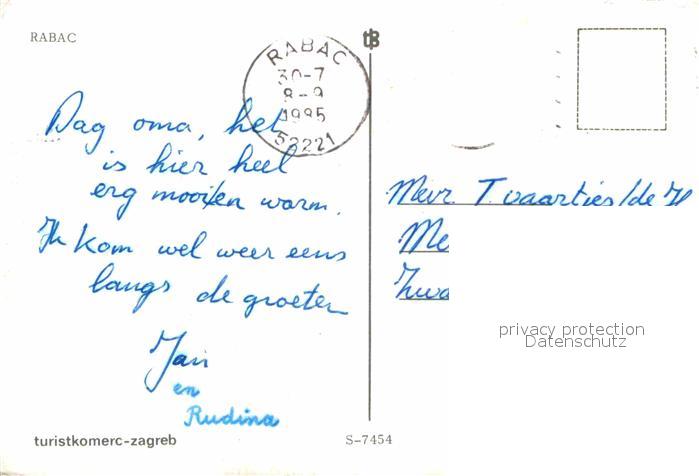 RABAC
tB
RABAC
30-7
8-9
1985
53221
Dag oma, het
is hier heel
erg mooi en warm.
Ik kom wel weer eens
langs de groeten
Jan
en
Rudina
Mevr. T
Me
Zwa
privacy protection
Datenschutz
turistkomerc-zagreb
S-7454